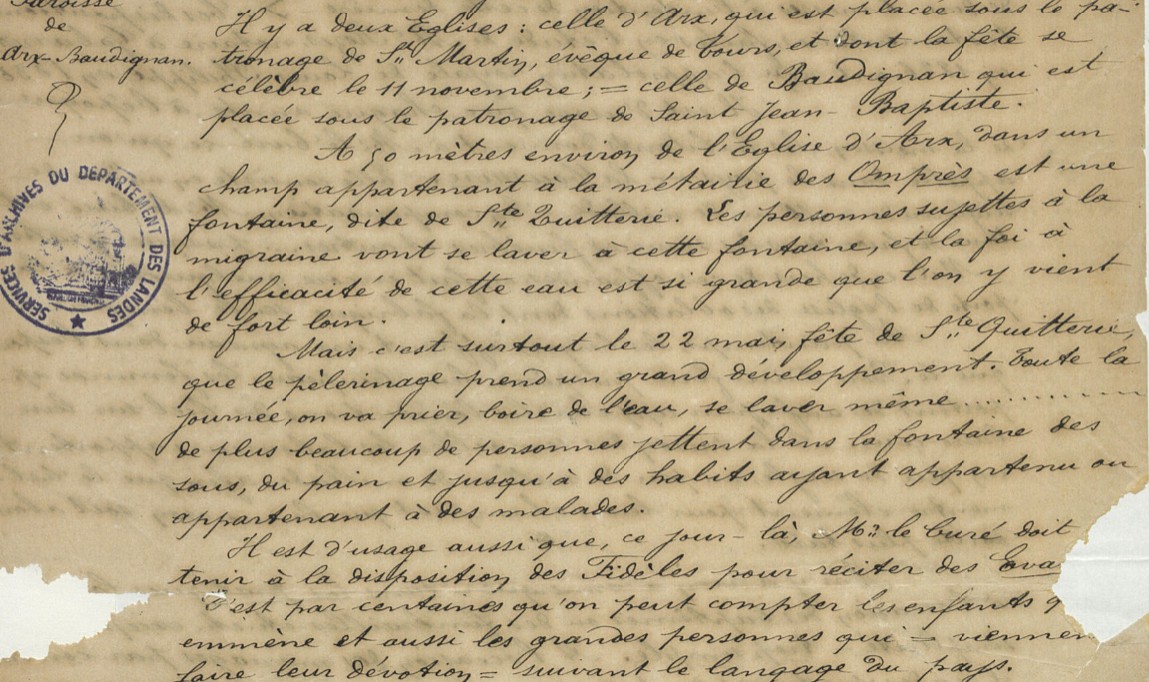 Paroisse
de
Arx-Baudignan.
Il y a deux Eglises : celle d'Arx, qui est placée sous le pa-
tronage de St Martin, évêque de Tours, et dont la fête se
célèbre le 11 novembre ; = celle de Baudignan qui est
placée sous le patronage de Saint Jean-Baptiste.
A 50 mètres environ de l'Eglise d'Arx, dans un
champ appartenant à la métairie des Omprès est une
fontaine, dite de Ste Quitterie. Les personnes sujettes à la
migraine vont se laver à cette fontaine, et la foi à
l'efficacité de cette eau est si grande que l'on y vient
de fort loin.
Mais c'est surtout le 22 mai, fête de Ste Quitterie,
que le pèlerinage prend un grand développement. Toute la
journée, on va prier, boire de l'eau, se laver même ............
de plus beaucoup de personnes jettent dans la fontaine des
sous, du pain et jusqu'à des habits ayant appartenu ou
appartenant à des malades.
Il est d'usage aussi que, ce jour-là, Mr le Curé doit
tenir à la disposition des Fidèles pour réciter des Eva
C'est par centaines qu'on peut compter les enfants q
emmène et aussi les grandes personnes qui = viennen
faire leur dévotion = suivant le langage du pays.
SERVICES D'ARCHIVES DU DÉPARTEMENT DES LANDES